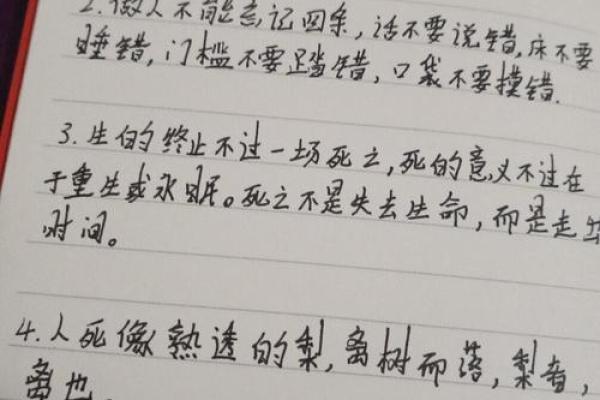 2.做人不能忘记四条，话不要说错，床不要
睡错，门槛不要踏错，口袋不要摸错.
3.生的终止不过一场死亡，死的意义不过在
于重生或永眠。死亡不是失去生命，而是走出
时间。
4.人死像熟透的梨，离树而落，梨者，
离也.